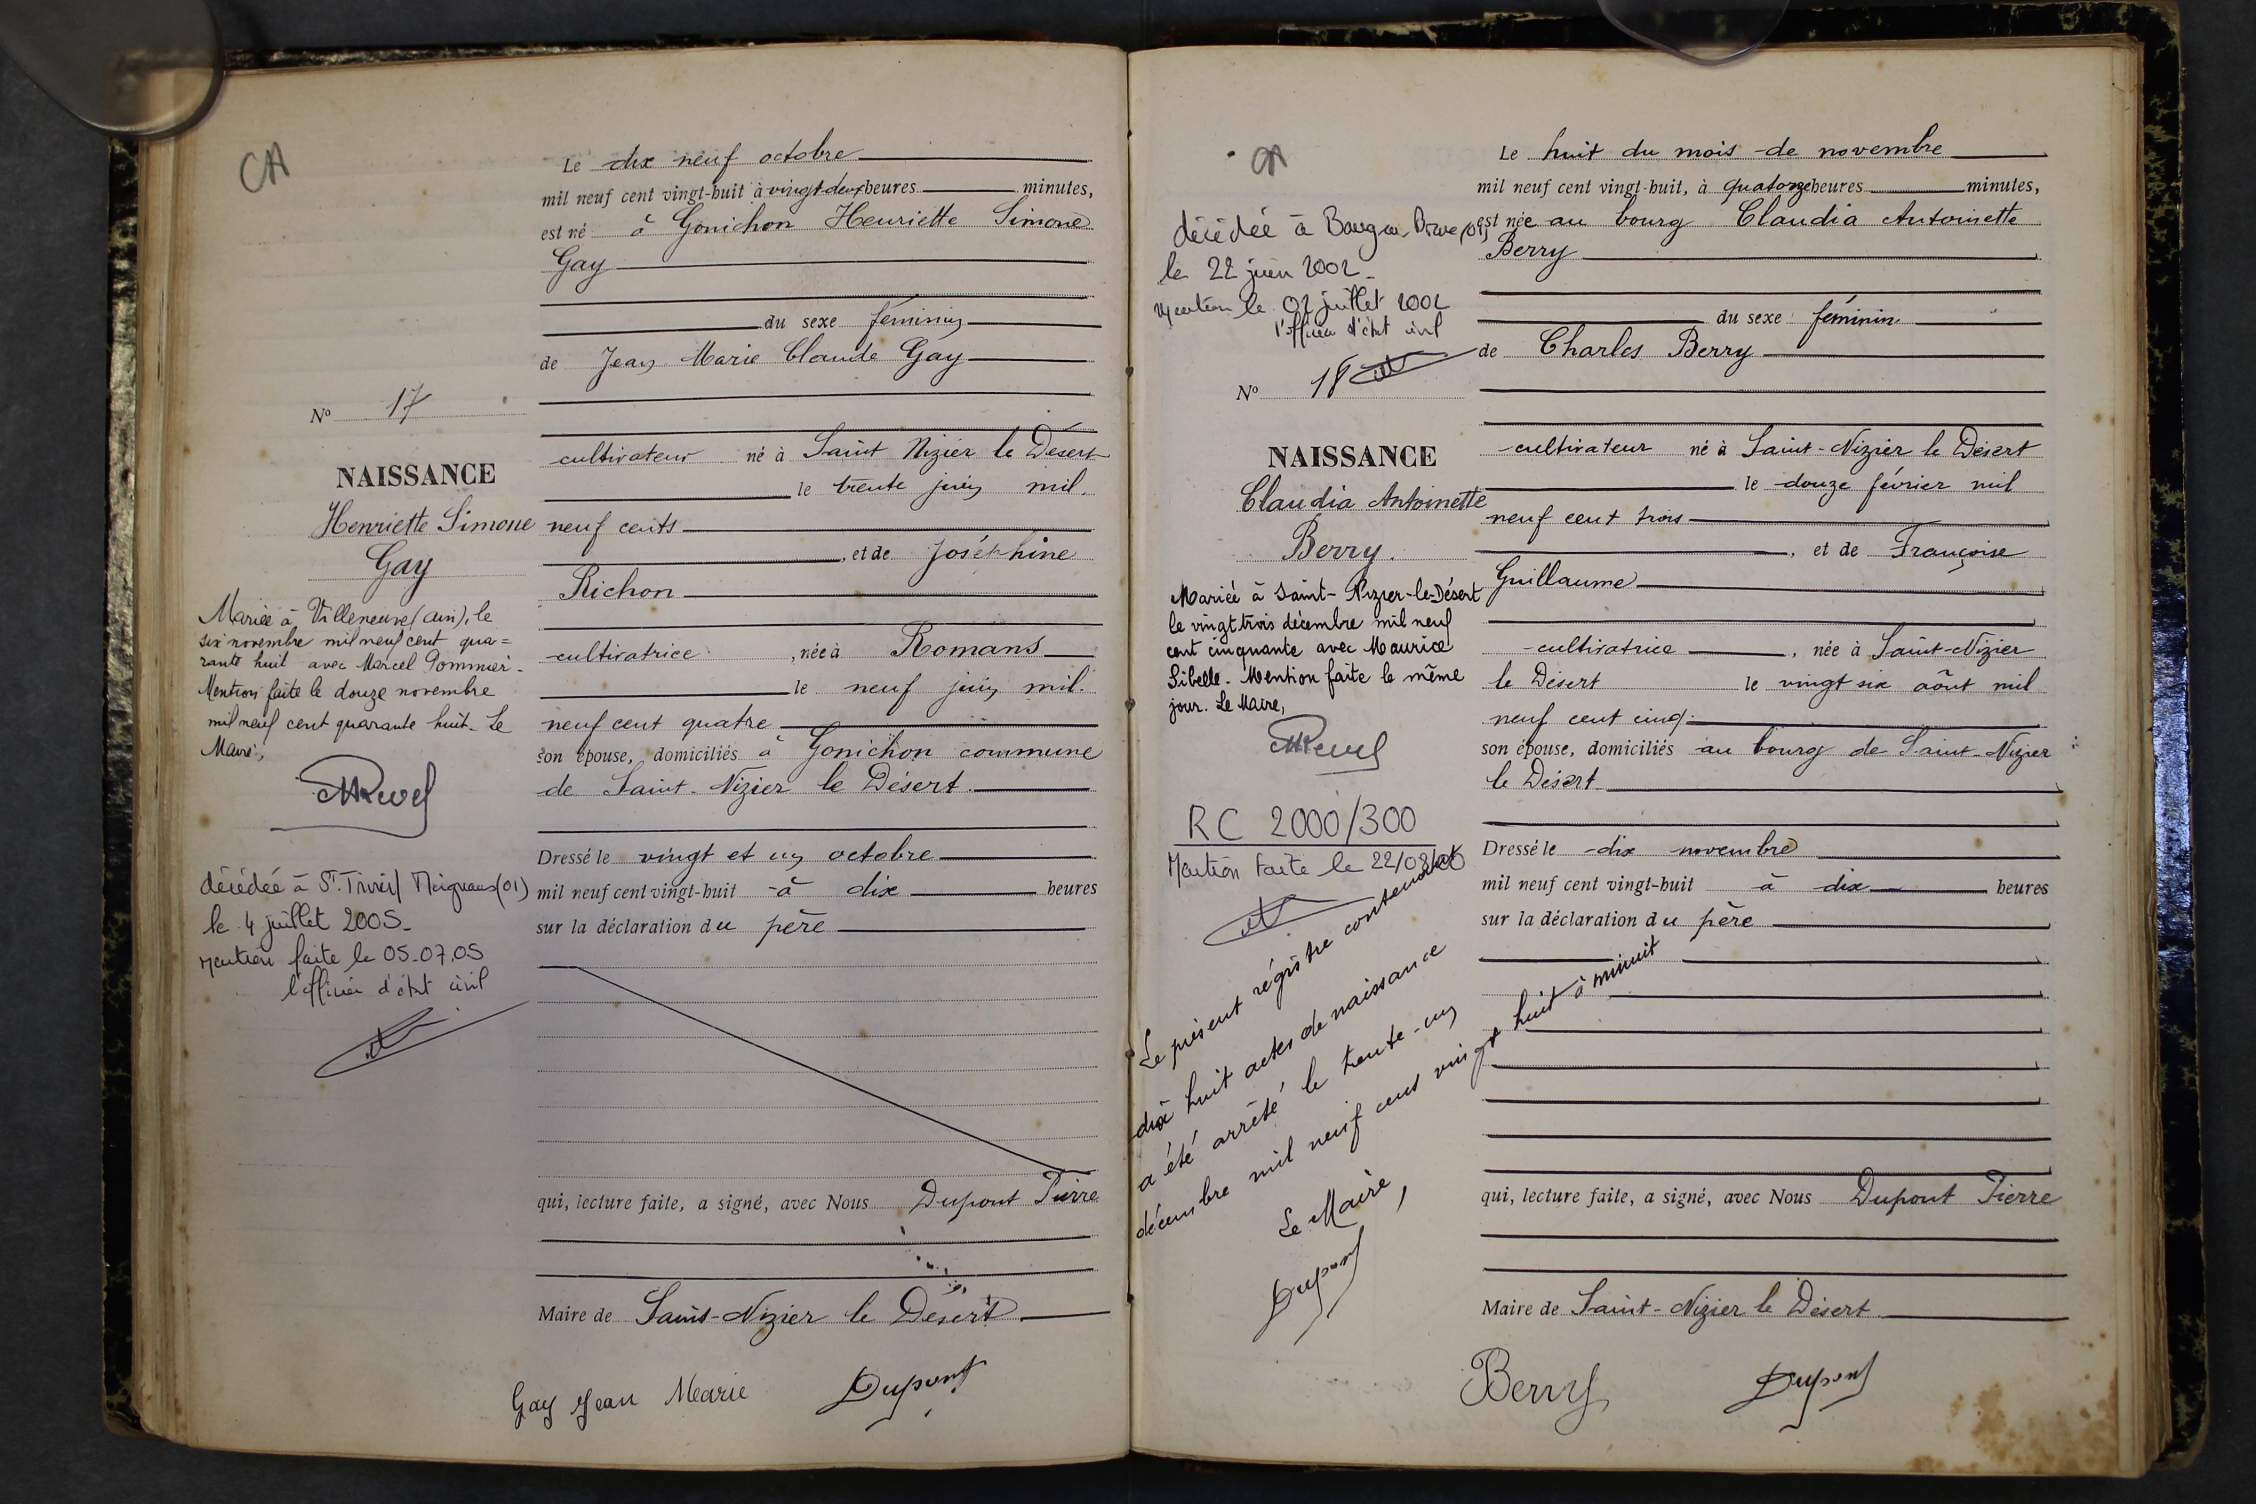 CA
Le dix neuf octobre
mil neuf cent vingt-huit à vingt-deux heures minutes,
est né à Gonichon Henriette Simone
Gay
du sexe féminin
de Jean Marie Claude Gay
N° 17
cultivateur né à Saint Nizier le Désert
le trente juin mil
NAISSANCE
Henriette Simone
Gay
neuf cents
, et de Joséphine
Richon
cultivatrice , née à Romans
le neuf juin mil
neuf cent quatre
son épouse, domiciliés à Gonichon commune
de Saint-Nizier le Désert.
Mariée à Villeneuve (ain), le
six novembre mil neuf cent qua=
rante huit avec Marcel Pommier.
Mention faite le douze novembre
mil neuf cent quarante huit. Le
Maire,
Dressé le vingt et un octobre
mil neuf cent vingt-huit à dix heures
sur la déclaration du père
décédée à St. Trivier/ Moignans (01)
le 4 juillet 2005.
Mention faite le 05.07.05
l'officier d'état civil
qui, lecture faite, a signé, avec Nous Dupont Pierre
Maire de Saint-Nizier le Désert
Gay Jean Marie Dupont
CA
Le huit du mois de novembre
mil neuf cent vingt-huit, à quatorze heures minutes,
est née au bourg Claudia Antoinette
Berry
du sexe féminin
de Charles Berry
décédée à Bourg-en-Bresse (01)
le 22 juin 2002.
Mention le 02 juillet 2002
l'officier d'état civil
N° 18
NAISSANCE
Claudia Antoinette
Berry.
cultivateur né à Saint-Nizier le Désert
le douze février mil
neuf cent trois
, et de Françoise
Guillaume
cultivatrice , née à Saint-Nizier
le Désert le vingt six août mil
neuf cent cinq
son épouse, domiciliés au bourg de Saint-Nizier
le Désert
Mariée à Saint-Nizier-le-Désert
le vingt trois décembre mil neuf
cent cinquante avec Maurice
Sibelle. Mention faite le même
jour. Le Maire,
RC 2000/300
Mention faite le
Dressé le dix novembre
mil neuf cent vingt-huit à dix heures
sur la déclaration du père
Le présent régistre contenant
dix huit actes de naissance
a été arrêté le trente-un
décembre mil neuf cent vingt huit à minuit
Le Maire,
Dupont
qui, lecture faite, a signé, avec Nous Dupont Pierre
Maire de Saint-Nizier le Désert
Berry Dupont